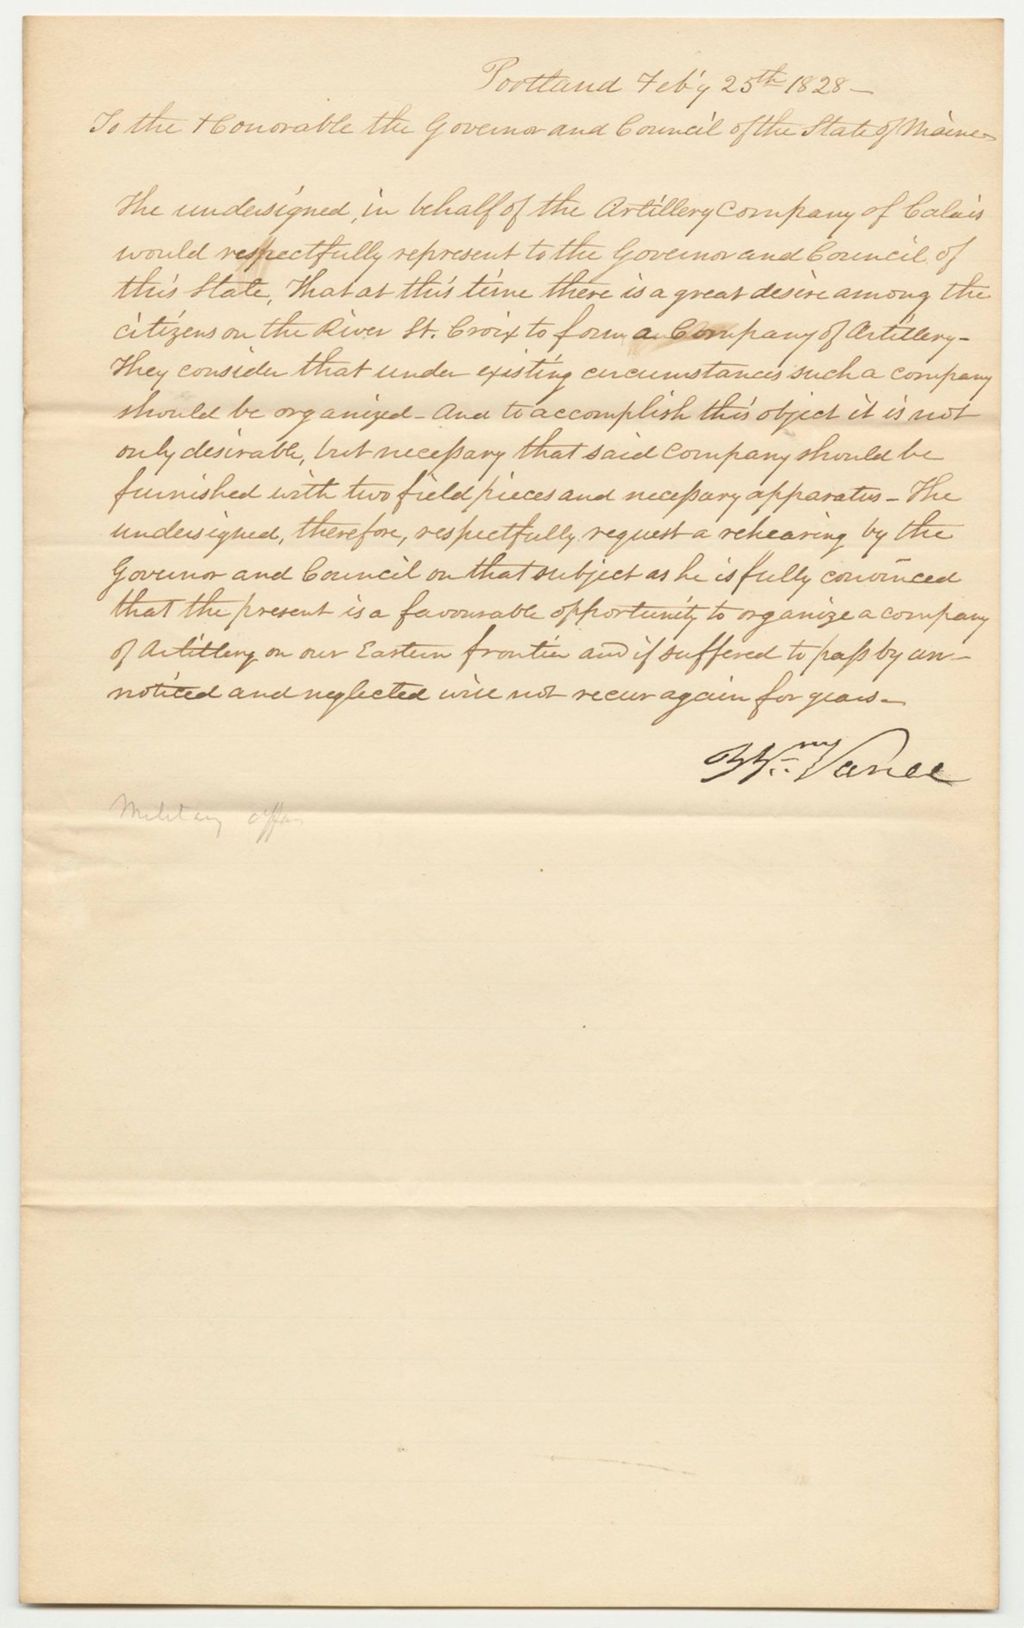 Portland Feb'y 25th 1828 —
To the Honorable the Governor and Council of the State of Maine
The undersigned, in behalf of the Artillery Company of Calais
would respectfully represent to the Governor and Council of
this State, That at this time there is a great desire among the
citizens on the River St. Croix to form a Company of Artillery -
They consider that under existing circumstances such a company
should be organized - And to accomplish this object it is not
only desirable, but necessary that said Company should be
furnished with two field pieces and necessary apparatus - The
undersigned, therefore, respectfully request a rehearing by the
Governor and Council on that subject as he is fully convinced
that the present is a favourable opportunity to organize a company
of Artillery on our Eastern frontier and if suffered to pass by un-
noticed and neglected will not recur again for years -
Wm Vance
Military